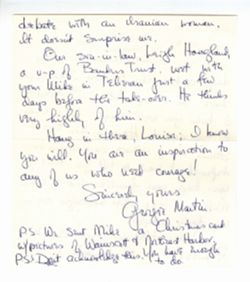 debate with an Iranian woman.
It doesn't surprise me.
Our son-in-law, Leigh Hoagland,
a v-p of Bankers Trust, met with
your Mike in Teheran just a few
days before the take-over. He thinks
very highly of him.
Hang in there, Louisa; I know
you will. You are an inspiration to
any of us who need courage!
Sincerely yours
Martin
PS We sent Mike a Christmas card
w/pictures of & Northeast Harbor.
PS Don't acknowledge this. You have enough
to do.